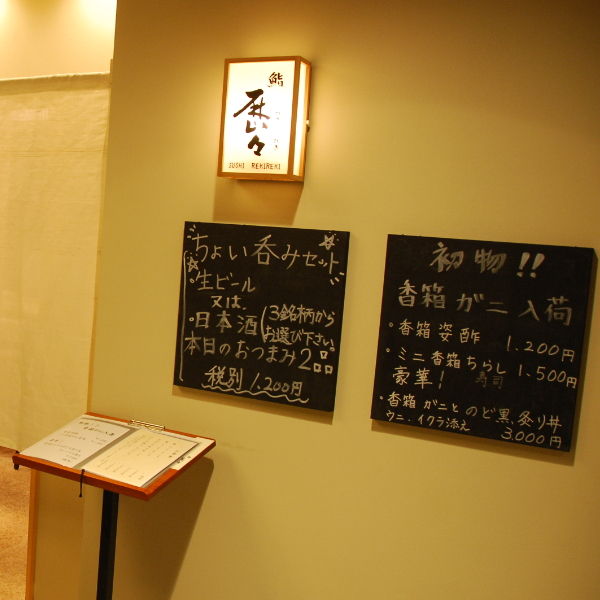 鮨
歴々
SUSHI REKIREKI
ちょい呑みセット
・生ビール
又は、
・日本酒(3銘柄から
お選び下さい。)
本日のおつまみ2品
税別 1.200円
初物!!
香箱ガニ入荷
・香箱 姿 酢 1.200円
・ミニ香箱ちらし 1.500円
豪華! 寿司
・香箱 ガニと のど黒 炙り丼
ウニ、イクラ添え
3.000円